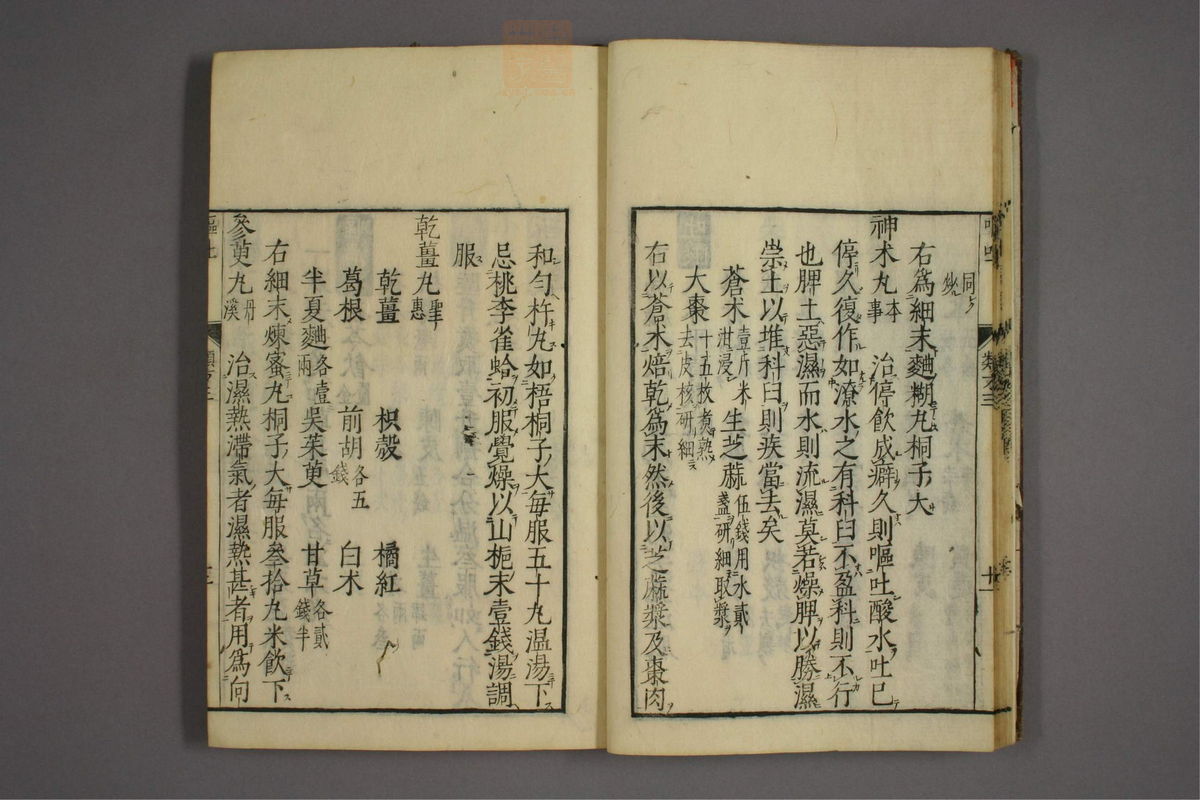 同
炒
右爲細末麯糊丸桐子大
神术丸本事　治停飲成癖久則嘔吐酸水吐已
停久復作如潦水之有科臼不盈科則不行
也脾土惡濕而水則流濕莫若燥脾以勝濕
崇土以堆科臼則疾當去矣
蒼术壹斤米泔浸　生芝蔴伍錢用水貳盞研細取漿
大棗十五枚煮熟去皮核研細
右以蒼术焙乾爲末然後以芝蔴漿及棗肉
和勻杵丸如梧桐子大每服五十丸温湯下
忌桃李雀蛤初服覺燥以山梔末壹錢湯調
服
乾薑丸聖惠
乾薑　枳殼　橘紅
葛根　前胡各五錢　白术
半夏麯各壹兩　吳茱萸　甘草各貳錢半
右細末煉蜜丸桐子大每服叄拾丸米飲下
參萸丸丹溪　治濕熱滯氣者濕熱甚者用爲向